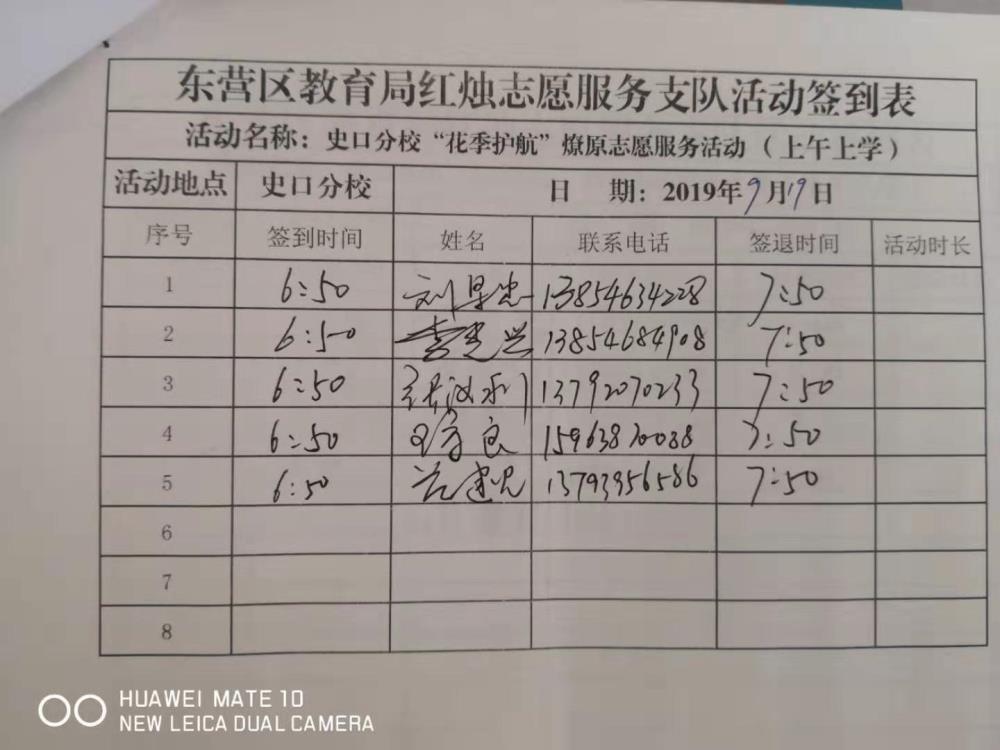 东营区教育局红烛志愿服务支队活动签到表
活动名称：史口分校“花季护航”燎原志愿服务活动（上午上学）
活动地点 史口分校 日 期：2019年9月19日
序号 签到时间 姓名 联系电话 签退时间 活动时长
1 6:50 13854634228 7:50
2 6:50 13854684908 7:50
3 6:50 张汉利 13792070233 7:50
4 6:50 15963870088 7:50
5 6:50 13793956586 7:50
6
7
8
HUAWEI MATE 10
NEW LEICA DUAL CAMERA